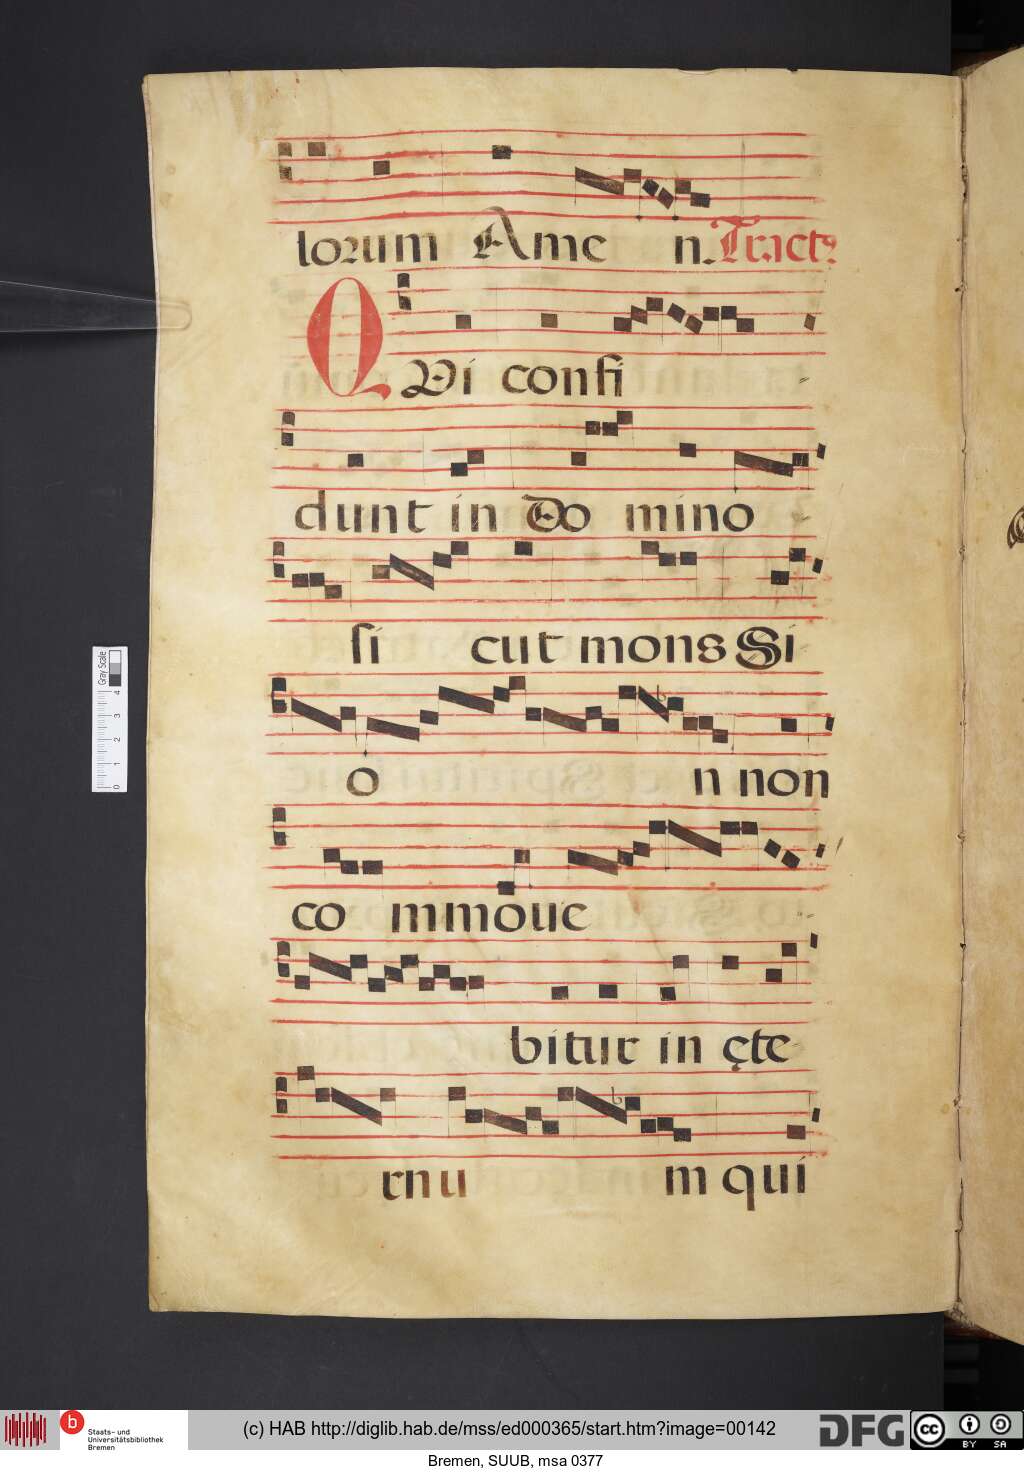 lorum Ame n. Tract⁊
QVi confi
dunt in Do mino
si cut mons Si
o n non
co mmoue
bitur in ęte
rnu m qui
Gray Scale
0 1 2 3 4
b Staats- und Universitätsbibliothek Bremen
(c) HAB http://diglib.hab.de/mss/ed000365/start.htm?image=00142
DFG
cc BY SA
Bremen, SUUB, msa 0377